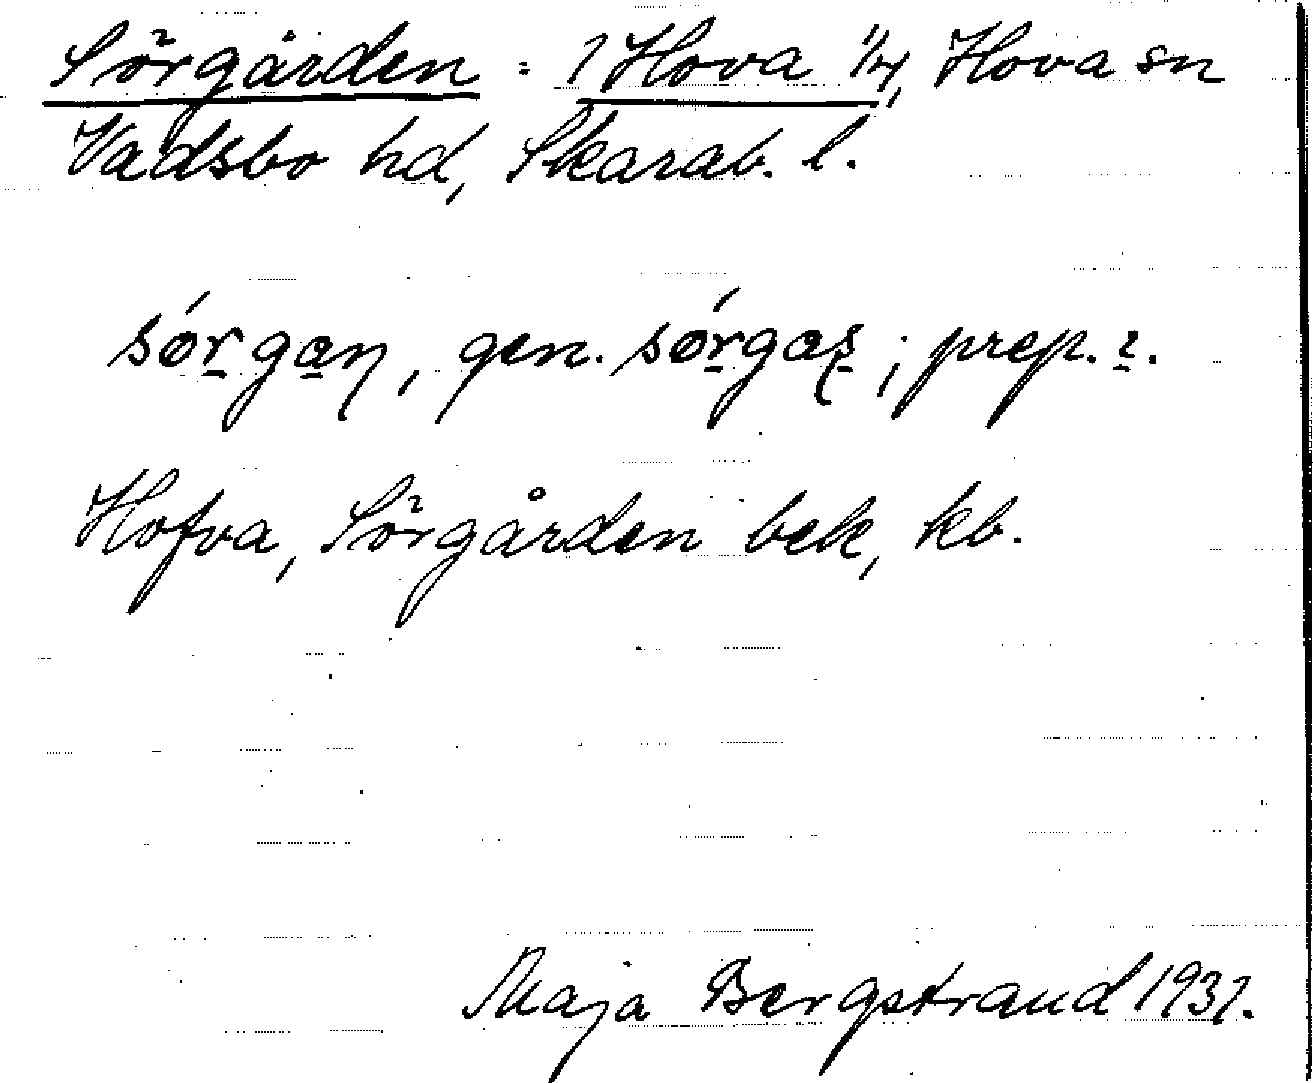 Sörgården = 1 Hova 1/4, Hova sn
Vadsbo hd, Skarab. l.
sǿrgaŋ, gen. sǿrgaʂ; prep. ɩ.
Hofva, Sörgården bek, kb.
Maja Bergstrand 1931.